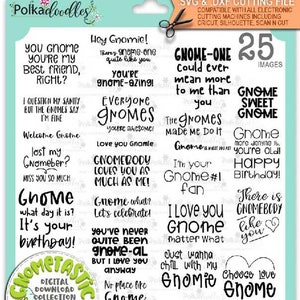 Polkadoodles
SVG & DXF CUTTING FILE
COMPATIBLE WITH ALL ELECTRONIC
CUTTING MACHINES INCLUDING
CRICUT, SILHOUETTE, SCAN N CUT
25
IMAGES
YOU GNOME
YOU'RE MY
BEST FRIEND,
RIGHT?
I QUESTION MY SANITY
BUT THE GNOMES SAY
I'M FINE
Welcome Gnome
lost my
Gnomeber?
MISS YOU SO MUCH
Gnome
what day it is?
It's your
birthday!
Hey Gnomie!
There's GNOME-ONE
quite like you
You're
gnome-azing!
Everyone
Gnomes
you're awesome!
Love you Gnomie
GNOMEBODY
LOVES YOU
AS MUCH
AS ME!
Gnome what?
Let's celebrate!
You've never
quite been
gnome-al
but I love you
anyway
No place like
Gnome
GNOME-ONE
Could ever
mean more
to me than
you
The Gnomes
made me do it
Gnome is where
I'm your
Gnome #1
fan
I LOVE YOU
Gnome
matter what
Just wannie
chill with my
Gnomie
GNOME
SWEET
GNOME
Gnome
more denying it,
you're old!
Happy
Birthday!
There is
GNOMEBODY
like
you
Choose love
Gnome
GNOMETASTIC
DIGITAL
DOWNLOAD
COLLECTION